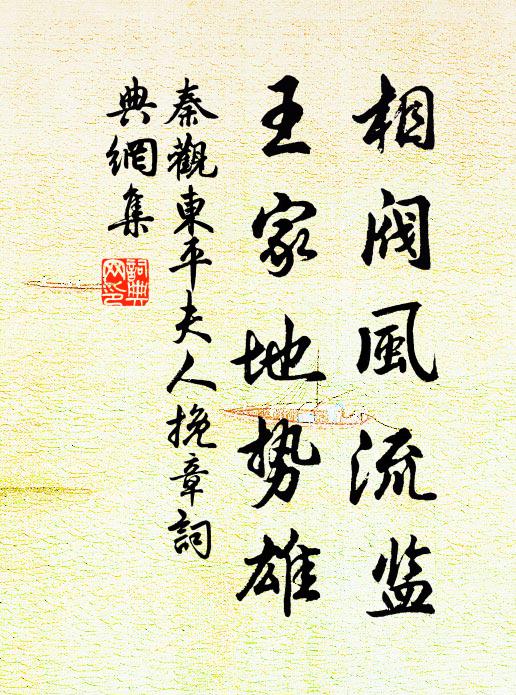 相阀風流监
王家地势雄
秦觀東平夫人挽章詞
典網集
詞典
网印